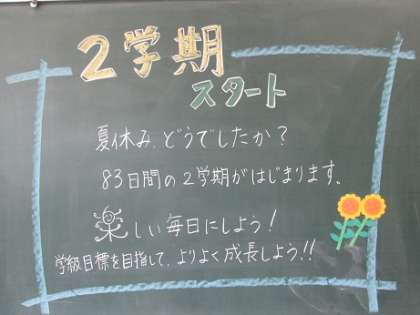 2学期
スタート
夏休み、どうでしたか？
83日間の2学期がはじまります。
楽しい毎日にしよう！
学級目標を目指して、よりよく成長しよう!!